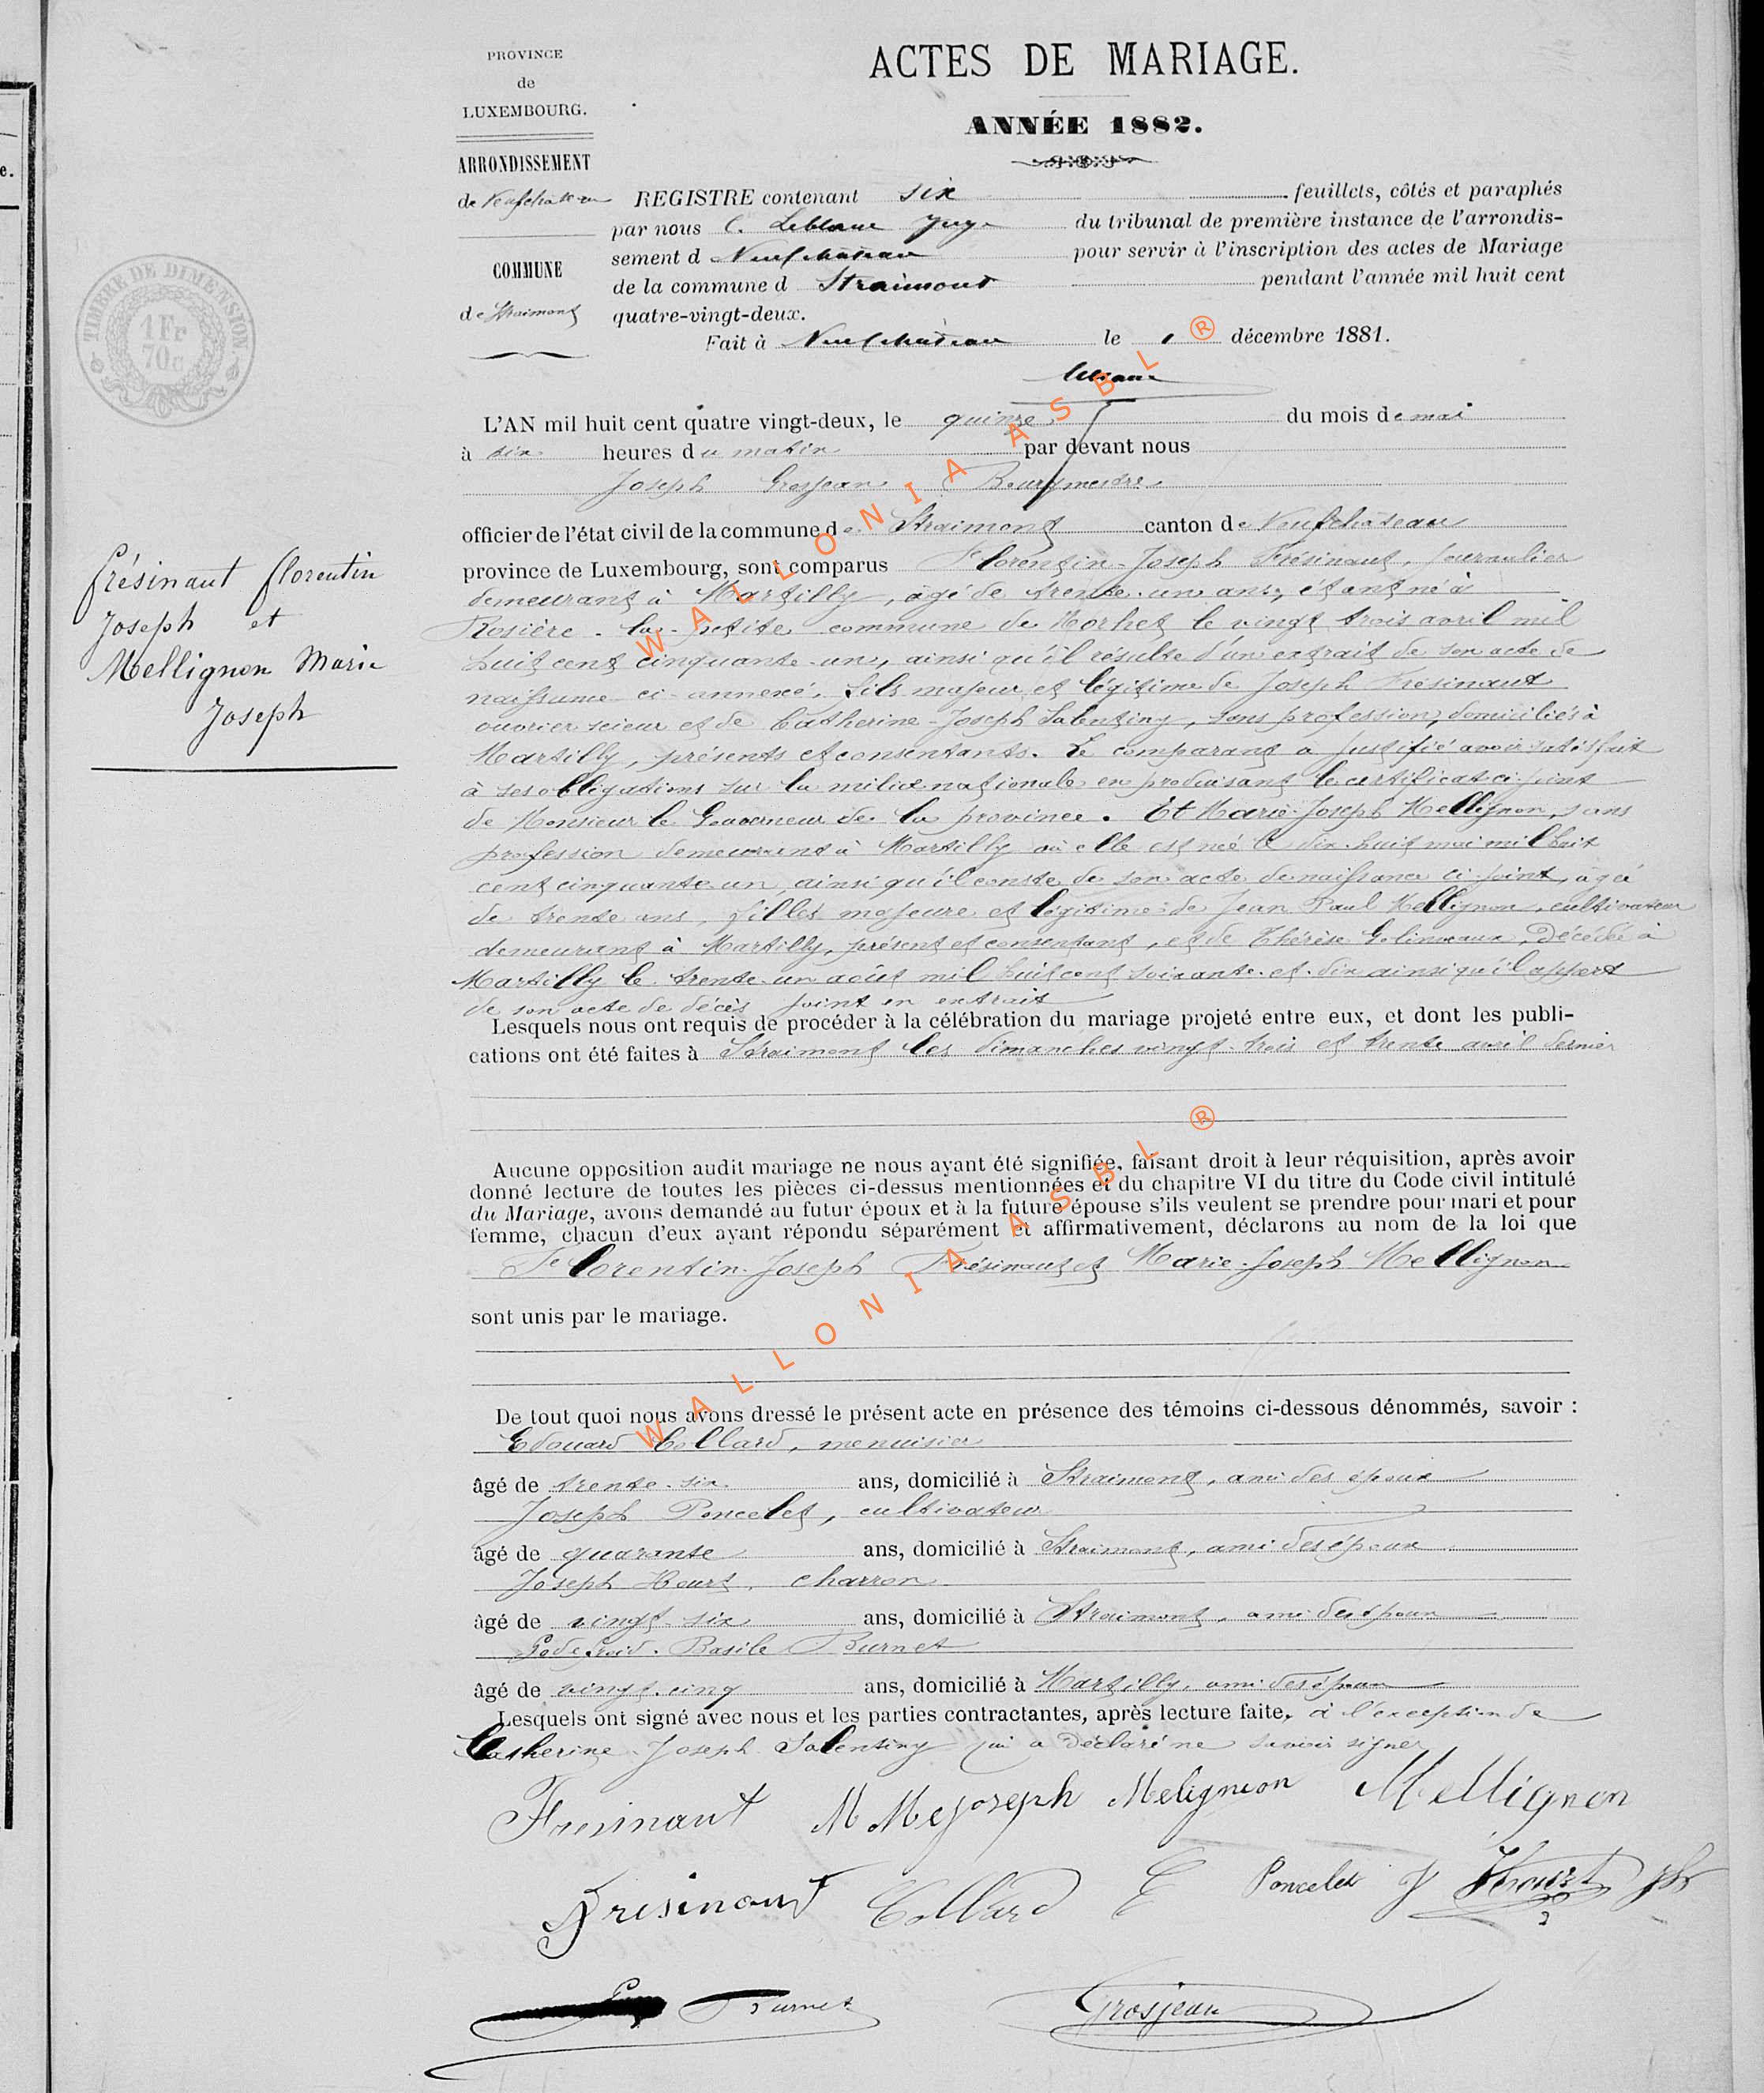 PROVINCE
de
LUXEMBOURG.
ARRONDISSEMENT
de Neufchateau
COMMUNE
de Straimont
TIMBRE DE DIMENSION
1 Fr
70c
ACTES DE MARIAGE.
ANNÉE 1882.
REGISTRE contenant six feuillets, côtés et paraphés
par nous C. Leblanc Juge du tribunal de première instance de l'arrondis-
sement d Neufchateau pour servir à l'inscription des actes de Mariage
de la commune d Straimont pendant l'année mil huit cent
quatre-vingt-deux.
Fait à Neufchateau le 1 décembre 1881.
Frésinaut florentin
Joseph et
Mellignon Marie
Joseph
L'AN mil huit cent quatre vingt-deux, le quinze du mois de mai
à dix heures du matin par devant nous
Joseph Grosjean Bourgmestre
officier de l'état civil de la commune de Straimont canton de Neufchâteau
province de Luxembourg, sont comparus Florentin-Joseph Frésinaut, journalier
demeurant à Martilly, âgé de trente-un ans, étant né à
Rosière-la-petite commune de Morhet le vingt trois avril mil
huit cent cinquante-un, ainsi qu'il résulte d'un extrait de son acte de
naissance ci-annexé, fils majeur et légitime de Joseph Frésinaut
ouvrier scieur et de Catherine-Joseph Salentiny, sans profession, domiciliés à
Martilly, présents et consentants. Le comparant a justifié avoir satisfait
à ses obligations sur la milice nationale en produisant le certificat ci-joint
de Monsieur le Gouverneur de la province. Et Marie-Joseph Mellignon, sans
profession demeurant à Martilly où elle est née le dix-huit mai mil huit
cent cinquante un, ainsi qu'il conste de son acte de naissance ci-joint, âgée
de trente ans, filles majeure et légitime de Jean Paul Mellignon, cultivateur
demeurant à Martilly, présent et consentant, et de Thérèse Golinvaux, décédée à
Martilly le trente-un août mil huit cent soixante-et-dix ainsi qu'il appert
de son acte de décès joint en extrait
Lesquels nous ont requis de procéder à la célébration du mariage projeté entre eux, et dont les publi-
cations ont été faites à Straimont les dimanches vingt-trois et trente avril dernier
Aucune opposition audit mariage ne nous ayant été signifiée, faisant droit à leur réquisition, après avoir
donné lecture de toutes les pièces ci-dessus mentionnées et du chapitre VI du titre du Code civil intitulé
du Mariage, avons demandé au futur époux et à la future épouse s'ils veulent se prendre pour mari et pour
femme, chacun d'eux ayant répondu séparément et affirmativement, déclarons au nom de la loi que
Florentin-Joseph Frésinaut et Marie-Joseph Mellignon
sont unis par le mariage.
De tout quoi nous avons dressé le présent acte en présence des témoins ci-dessous dénommés, savoir :
Edouard Collard, menuisier
âgé de trente-six ans, domicilié à Straimont, ami des époux
Joseph Poncelet, cultivateur
âgé de quarante ans, domicilié à Straimont, ami des époux
Joseph Hourt, charron
âgé de vingt-six ans, domicilié à Straimont, ami des époux
Godefroid-Basile Burnet
âgé de vingt-cinq ans, domicilié à Martilly, ami des époux
Lesquels ont signé avec nous et les parties contractantes, après lecture faite, à l'exception de
Catherine-Joseph Salentiny qui a déclaré ne savoir signer
Fresinaut M Mejoseph Melignion Mellignon
Fresinaut Collard E Poncelet J Hourt Jh
Burnet Grosjean
WALLONIA ASBL ®
WALLONIA ASBL ®